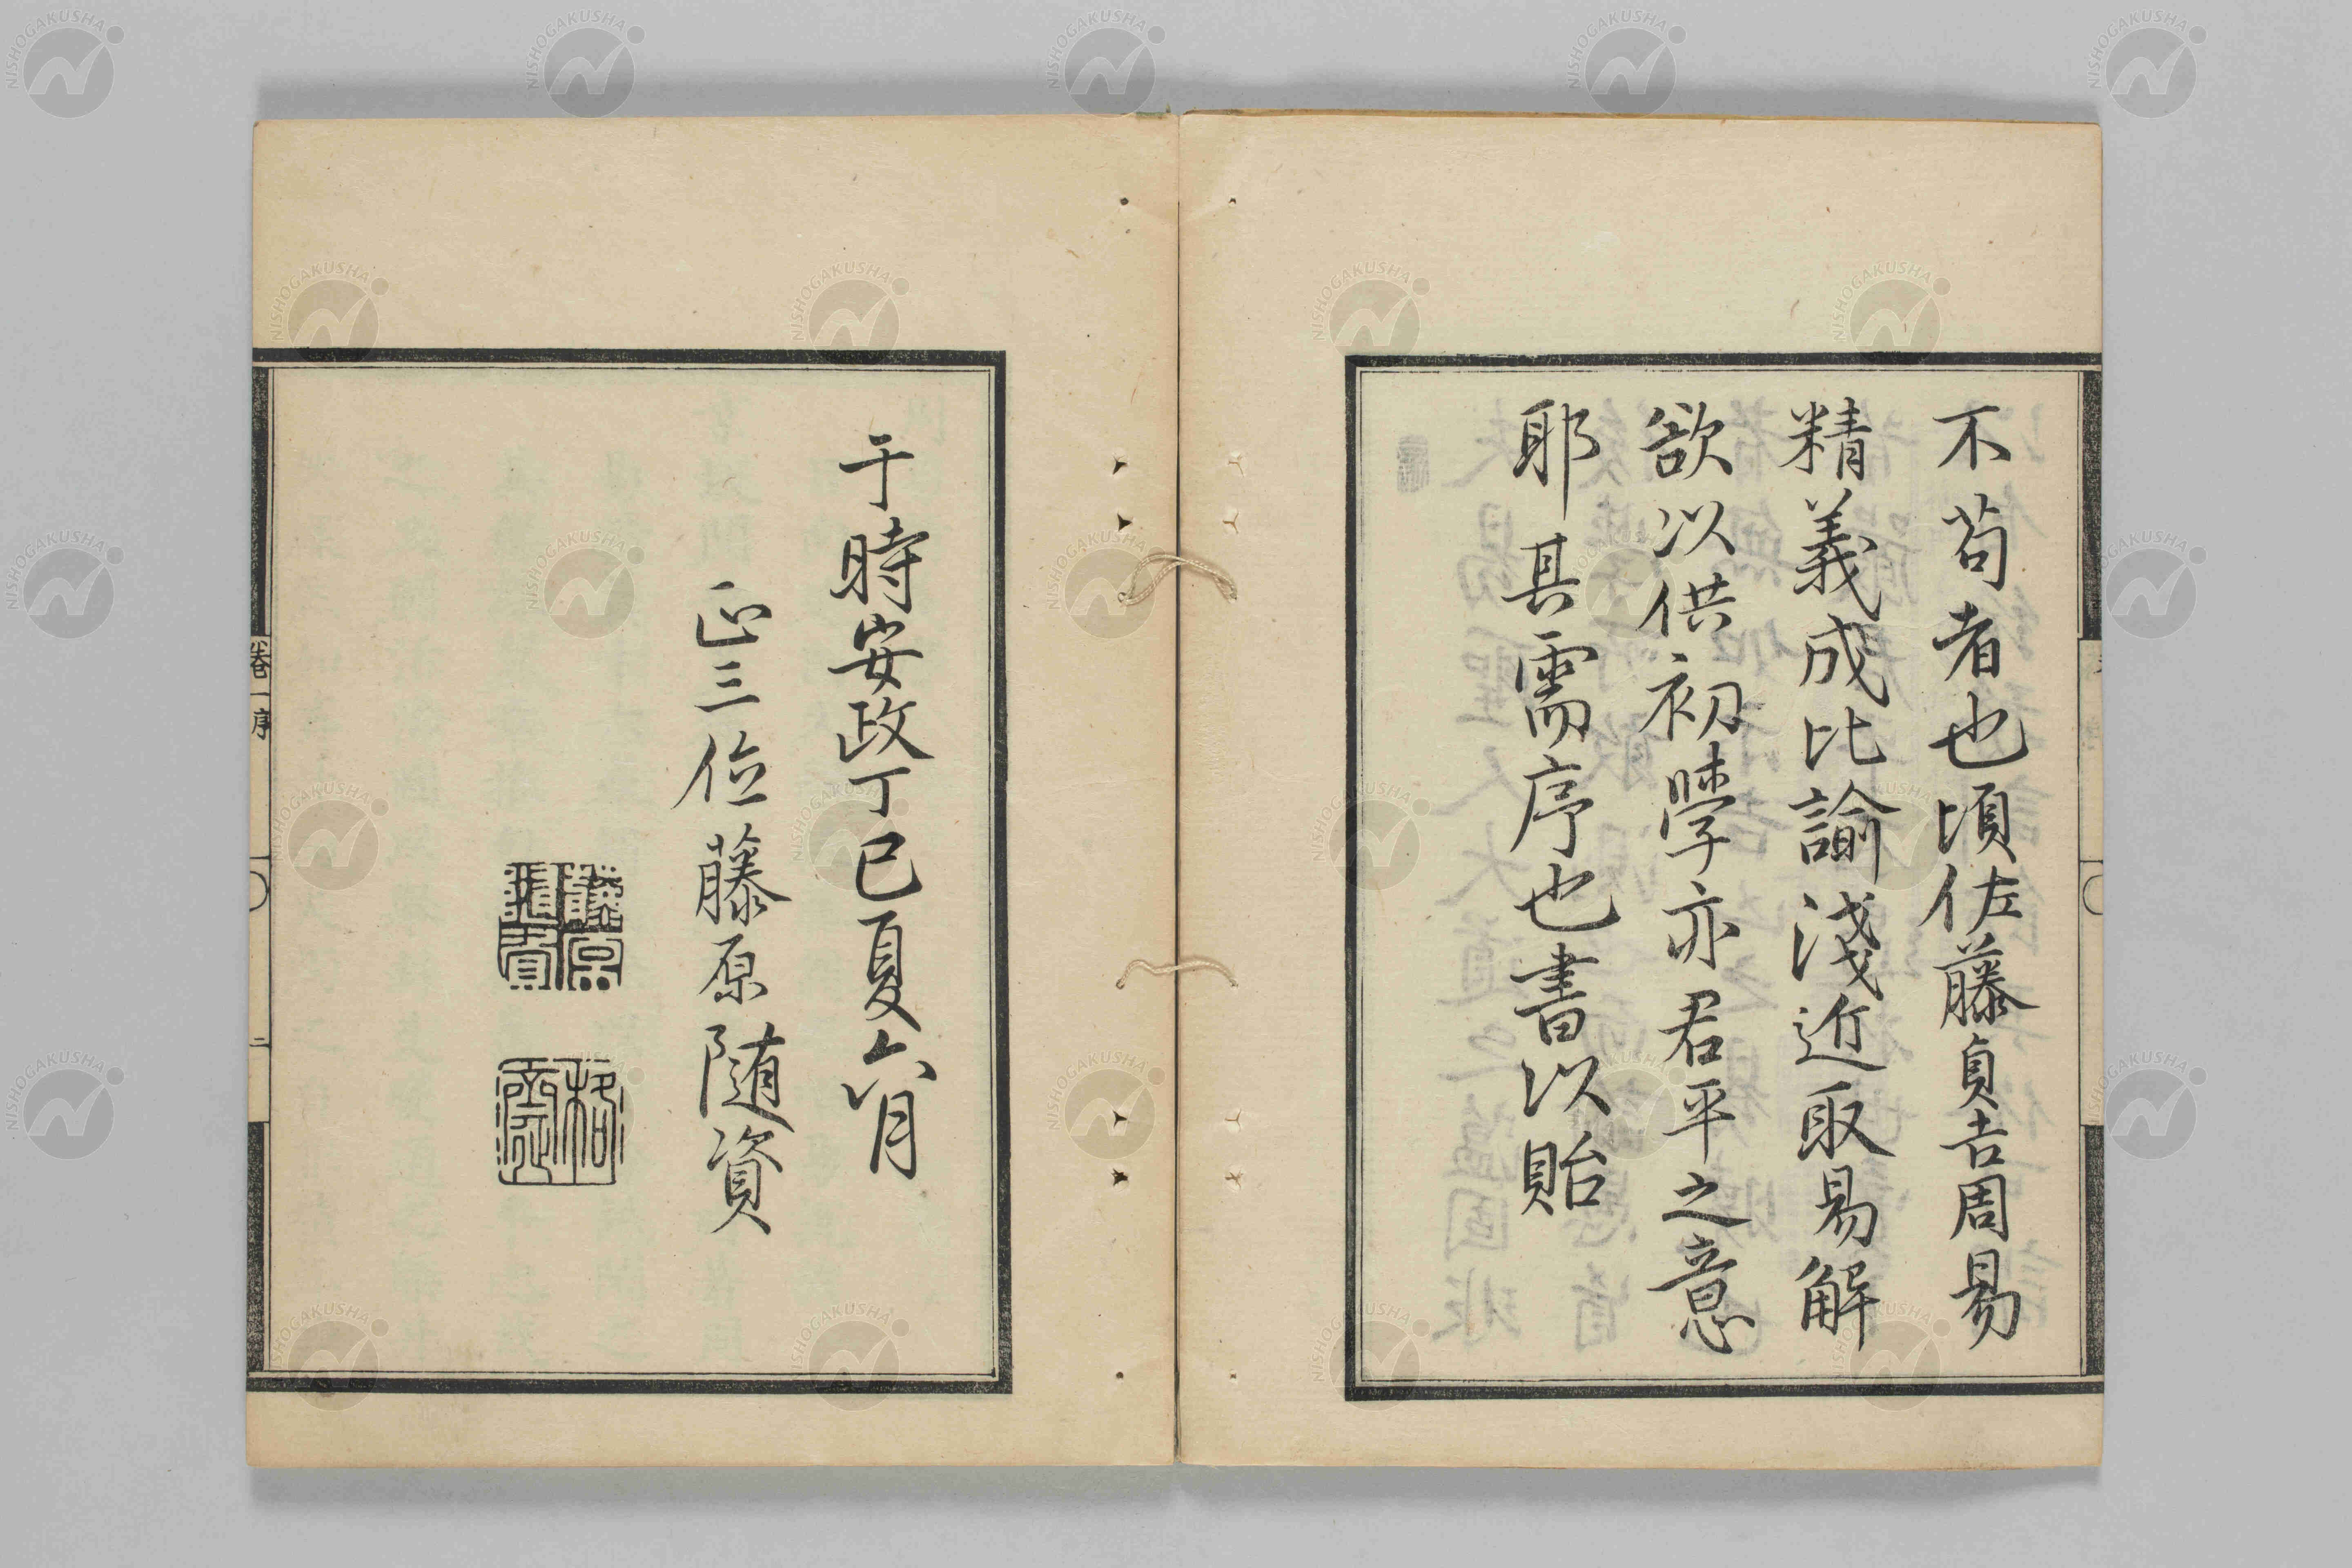 不苟者也頃佐藤貞吉周易
精義成比諭淺近取易解
欲以供初學亦君平之意
耶其需序也書以貽
于時安政丁巳夏六月
正三位藤原随資
藤原
隨資
格
齋
卷一序
二
NISHOGAKUSHA